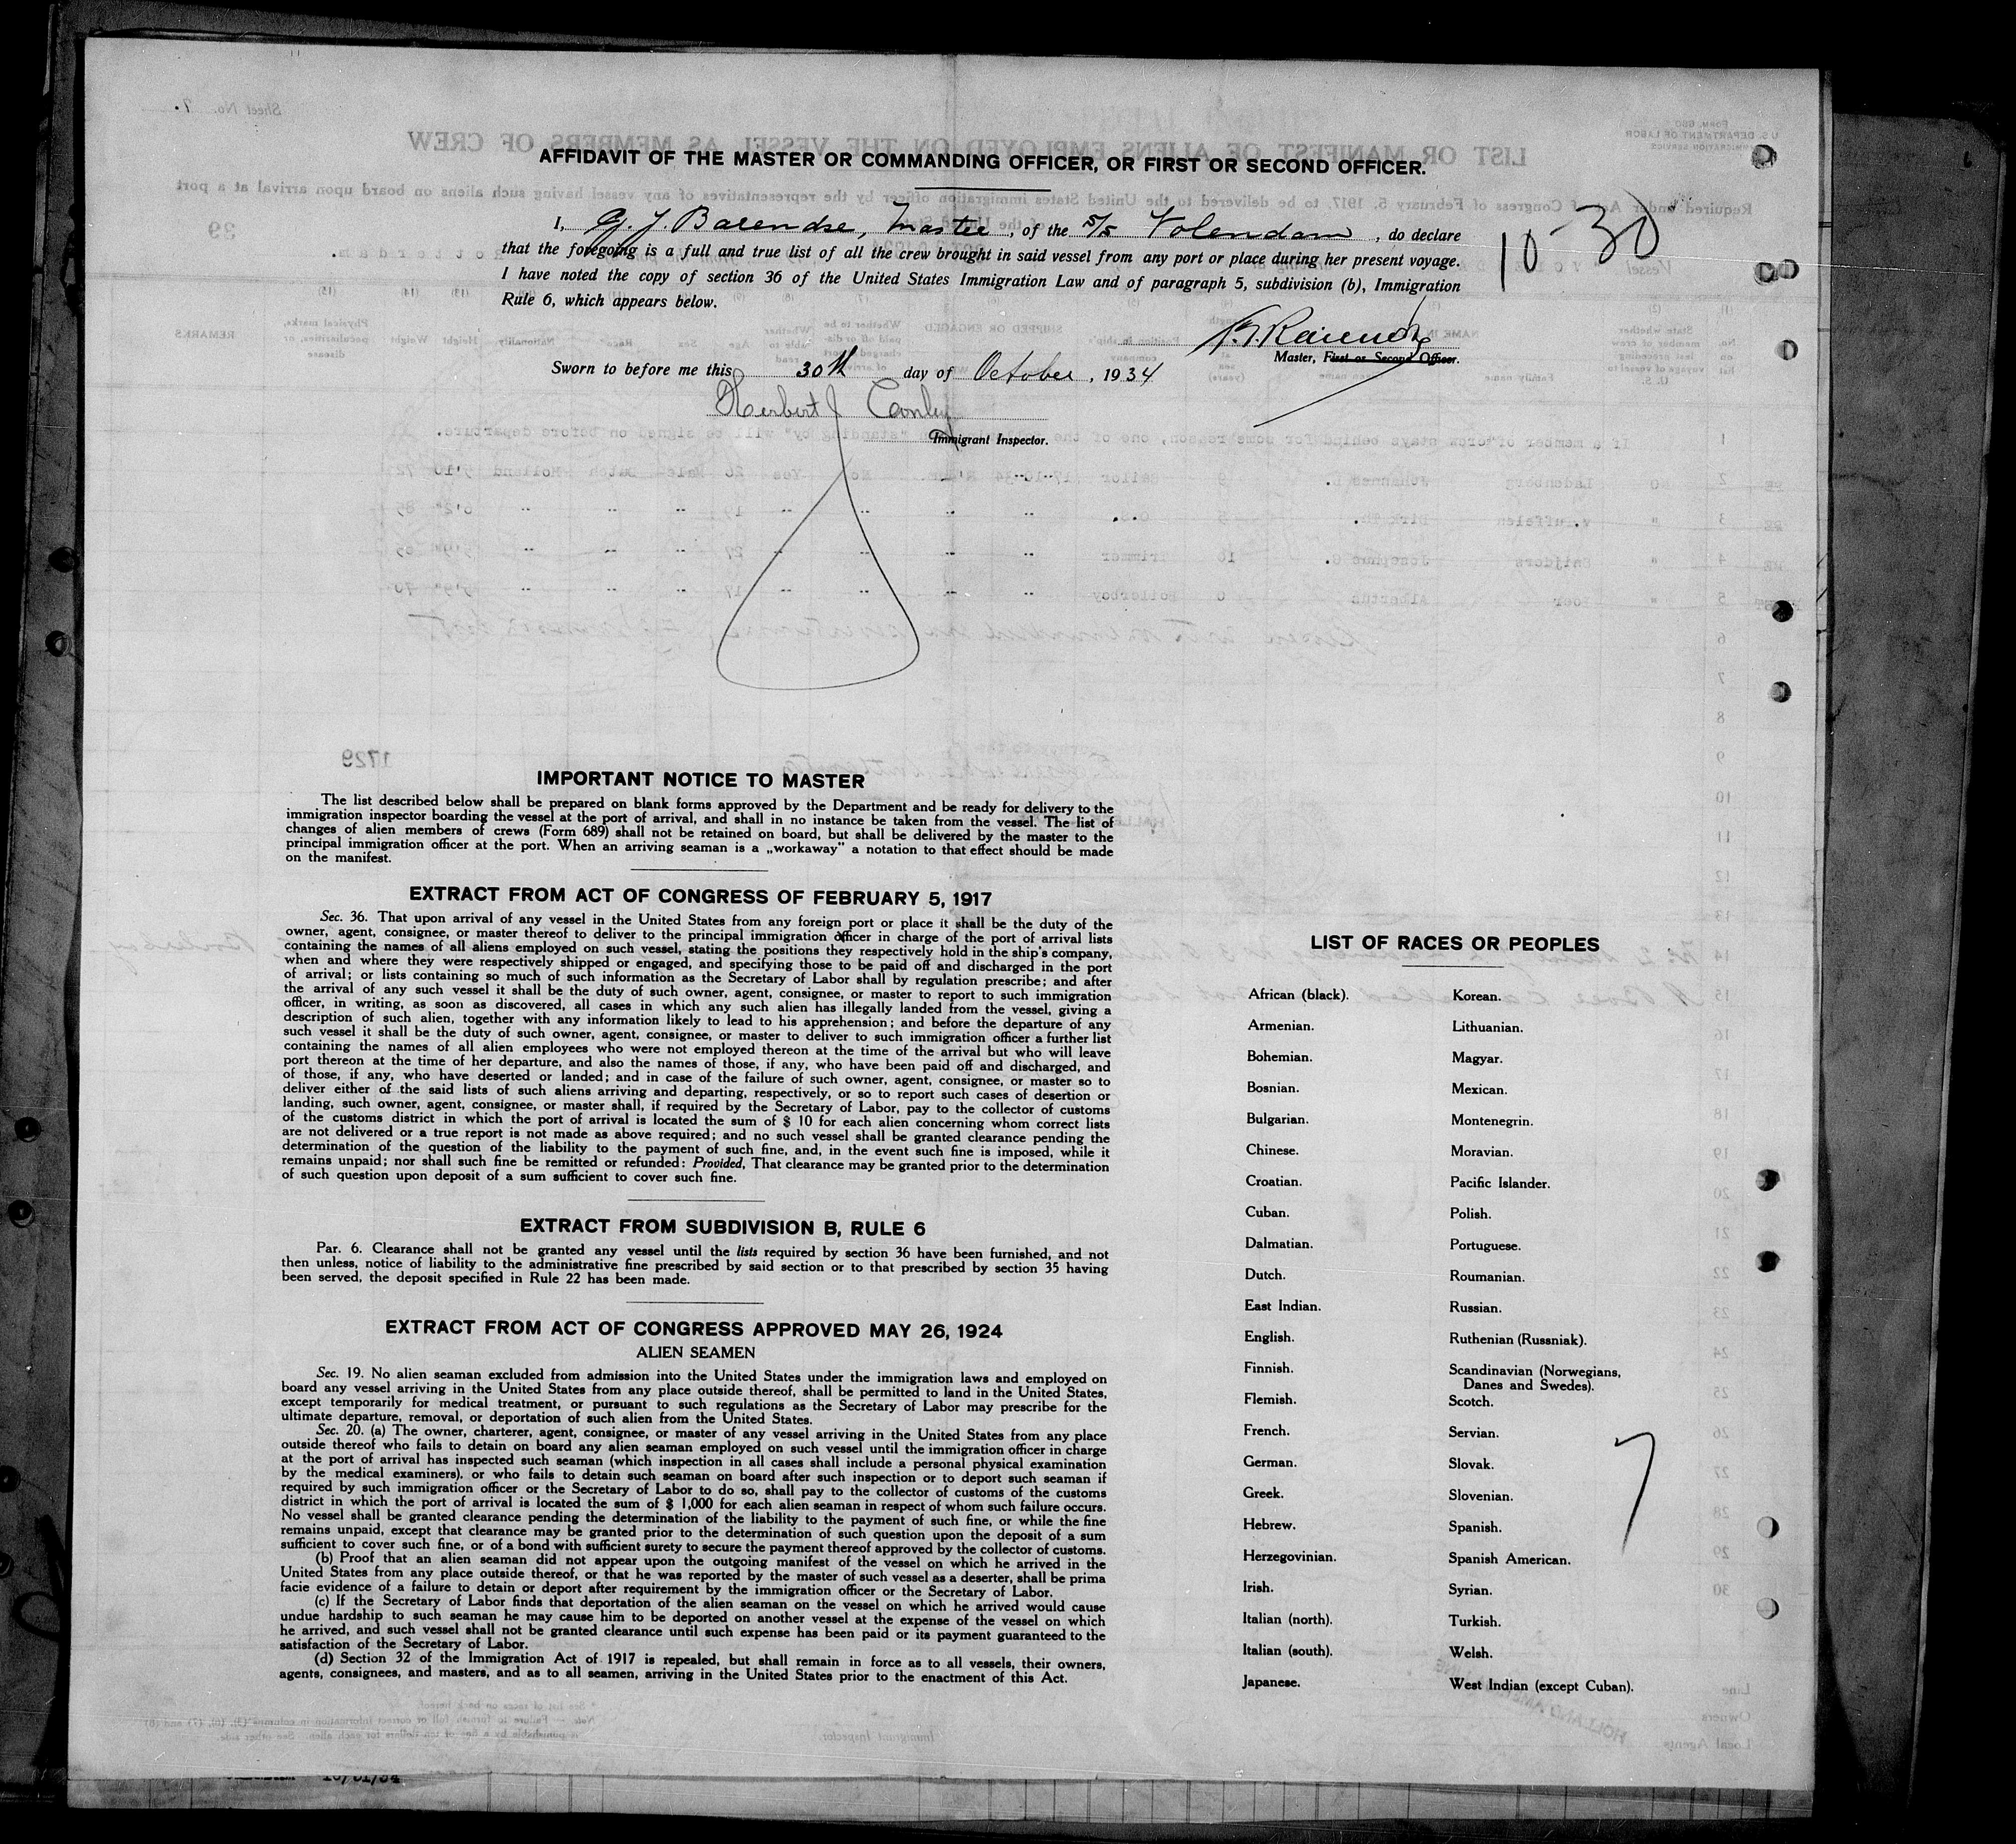 AFFIDAVIT OF THE MASTER OR COMMANDING OFFICER, OR FIRST OR SECOND OFFICER.
I, G. J. Barendse, Master, of the S/S Volendam, do declare
that the foregoing is a full and true list of all the crew brought in said vessel from any port or place during her present voyage.
I have noted the copy of section 36 of the United States Immigration Law and of paragraph 5, subdivision (b), Immigration
Rule 6, which appears below.
10-30
Master, First or Second Officer.
Sworn to before me this 30th day of October, 1934
Herbert J Conley
Immigrant Inspector.
IMPORTANT NOTICE TO MASTER
The list described below shall be prepared on blank forms approved by the Department and be ready for delivery to the
immigration inspector boarding the vessel at the port of arrival, and shall in no instance be taken from the vessel. The list of
changes of alien members of crews (Form 689) shall not be retained on board, but shall be delivered by the master to the
principal immigration officer at the port. When an arriving seaman is a „workaway” a notation to that effect should be made
on the manifest.
EXTRACT FROM ACT OF CONGRESS OF FEBRUARY 5, 1917
Sec. 36. That upon arrival of any vessel in the United States from any foreign port or place it shall be the duty of the
owner, agent, consignee, or master thereof to deliver to the principal immigration officer in charge of the port of arrival lists
containing the names of all aliens employed on such vessel, stating the positions they respectively hold in the ship's company,
when and where they were respectively shipped or engaged, and specifying those to be paid off and discharged in the port
of arrival; or lists containing so much of such information as the Secretary of Labor shall by regulation prescribe; and after
the arrival of any such vessel it shall be the duty of such owner, agent, consignee, or master to report to such immigration
officer, in writing, as soon as discovered, all cases in which any such alien has illegally landed from the vessel, giving a
description of such alien, together with any information likely to lead to his apprehension; and before the departure of any
such vessel it shall be the duty of such owner, agent, consignee, or master to deliver to such immigration officer a further list
containing the names of all alien employees who were not employed thereon at the time of the arrival but who will leave
port thereon at the time of her departure, and also the names of those, if any, who have been paid off and discharged, and
of those, if any, who have deserted or landed; and in case of the failure of such owner, agent, consignee, or master so to
deliver either of the said lists of such aliens arriving and departing, respectively, or so to report such cases of desertion or
landing, such owner, agent, consignee, or master shall, if required by the Secretary of Labor, pay to the collector of customs
of the customs district in which the port of arrival is located the sum of $ 10 for each alien concerning whom correct lists
are not delivered or a true report is not made as above required; and no such vessel shall be granted clearance pending the
determination of the question of the liability to the payment of such fine, and, in the event such fine is imposed, while it
remains unpaid; nor shall such fine be remitted or refunded: Provided, That clearance may be granted prior to the determination
of such question upon deposit of a sum sufficient to cover such fine.
EXTRACT FROM SUBDIVISION B, RULE 6
Par. 6. Clearance shall not be granted any vessel until the lists required by section 36 have been furnished, and not
then unless, notice of liability to the administrative fine prescribed by said section or to that prescribed by section 35 having
been served, the deposit specified in Rule 22 has been made.
EXTRACT FROM ACT OF CONGRESS APPROVED MAY 26, 1924
ALIEN SEAMEN
Sec. 19. No alien seaman excluded from admission into the United States under the immigration laws and employed on
board any vessel arriving in the United States from any place outside thereof, shall be permitted to land in the United States,
except temporarily for medical treatment, or pursuant to such regulations as the Secretary of Labor may prescribe for the
ultimate departure, removal, or deportation of such alien from the United States.
Sec. 20. (a) The owner, charterer, agent, consignee, or master of any vessel arriving in the United States from any place
outside thereof who fails to detain on board any alien seaman employed on such vessel until the immigration officer in charge
at the port of arrival has inspected such seaman (which inspection in all cases shall include a personal physical examination
by the medical examiners), or who fails to detain such seaman on board after such inspection or to deport such seaman if
required by such immigration officer or the Secretary of Labor to do so, shall pay to the collector of customs of the customs
district in which the port of arrival is located the sum of $ 1,000 for each alien seaman in respect of whom such failure occurs.
No vessel shall be granted clearance pending the determination of the liability to the payment of such fine, or while the fine
remains unpaid, except that clearance may be granted prior to the determination of such question upon the deposit of a sum
sufficient to cover such fine, or of a bond with sufficient surety to secure the payment thereof approved by the collector of customs.
(b) Proof that an alien seaman did not appear upon the outgoing manifest of the vessel on which he arrived in the
United States from any place outside thereof, or that he was reported by the master of such vessel as a deserter, shall be prima
facie evidence of a failure to detain or deport after requirement by the immigration officer or the Secretary of Labor.
(c) If the Secretary of Labor finds that deportation of the alien seaman on the vessel on which he arrived would cause
undue hardship to such seaman he may cause him to be deported on another vessel at the expense of the vessel on which
he arrived, and such vessel shall not be granted clearance until such expense has been paid or its payment guaranteed to the
satisfaction of the Secretary of Labor.
(d) Section 32 of the Immigration Act of 1917 is repealed, but shall remain in force as to all vessels, their owners,
agents, consignees, and masters, and as to all seamen, arriving in the United States prior to the enactment of this Act.
LIST OF RACES OR PEOPLES
African (black).
Armenian.
Bohemian.
Bosnian.
Bulgarian.
Chinese.
Croatian.
Cuban.
Dalmatian.
Dutch.
East Indian.
English.
Finnish.
Flemish.
French.
German.
Greek.
Hebrew.
Herzegovinian.
Irish.
Italian (north).
Italian (south).
Japanese.
Korean.
Lithuanian.
Magyar.
Mexican.
Montenegrin.
Moravian.
Pacific Islander.
Polish.
Portuguese.
Roumanian.
Russian.
Ruthenian (Russniak).
Scandinavian (Norwegians,
Danes and Swedes).
Scotch.
Servian.
Slovak.
Slovenian.
Spanish.
Spanish American.
Syrian.
Turkish.
Welsh.
West Indian (except Cuban).
7